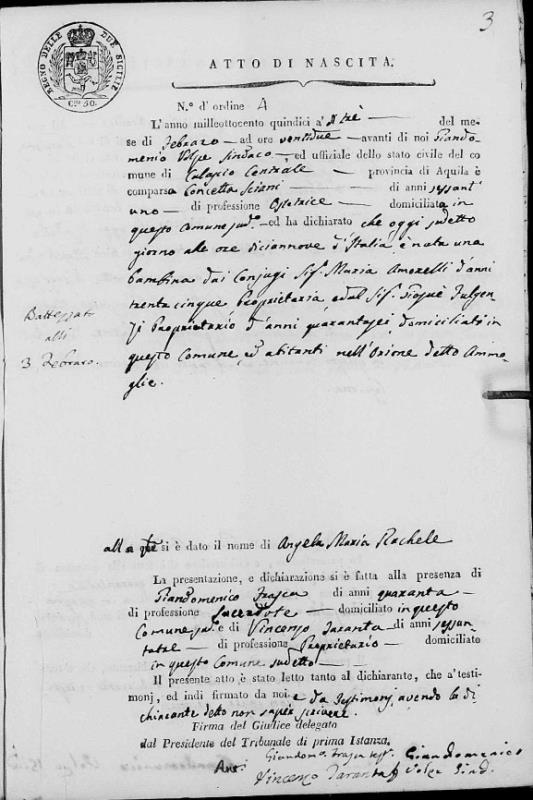 3
REGNO DELLE DUE SICILIE
ATTO DI NASCITA.
N.° d' ordine 4
L'anno milleottocento quindici a' tre del me-
se di Febraro ad ore ventidue avanti di noi Giando-
menico Volpe Sindaco, ed uffiziale dello stato civile del co
mune di Calascio Centrale provincia di Aquila è
comparsa Concetta di anni sessant'
uno di professione Ostetrice domiciliata in
questo Comune sud.° ed ha dichiarato che oggi sudetto
giorno alle ore diciannove d'Italia è nata una
bambina dai Conjugi Sig.ª Maria Amorelli d'anni
trenta cinque Proprietaria, e dal Sig.r Giosuè Fulgen
zj Proprietario d'anni quarantasei, domiciliati in
questo Comune, ed abitanti nell'Orione detto Amm
glie.
Battezzat
alli
3 Febraro.
alla qle si è dato il nome di Angela Maria Rachele
La presentazione, e dichiarazione si è fatta alla presenza di
Giandomenico Frasca di anni quaranta
di professione Sacerdote domiciliato in questo
Comune sud.° e di Vincenzo Taranta di anni sessan
di professione Proprietario domiciliato
in questo Comune sudetto
Il presente atto è stato letto tanto al dichiarante, che a' testi-
monj, ed indi firmato da noi e da Testimonj avendo la di
chiarante detto non saper scrivere.
Firma del Giudice delegato
dal Presidente del Tribunale di prima Istanza.
Giandom.° Frasca test. Giandomenico
Vincenzo Taranta Volpe Sind.